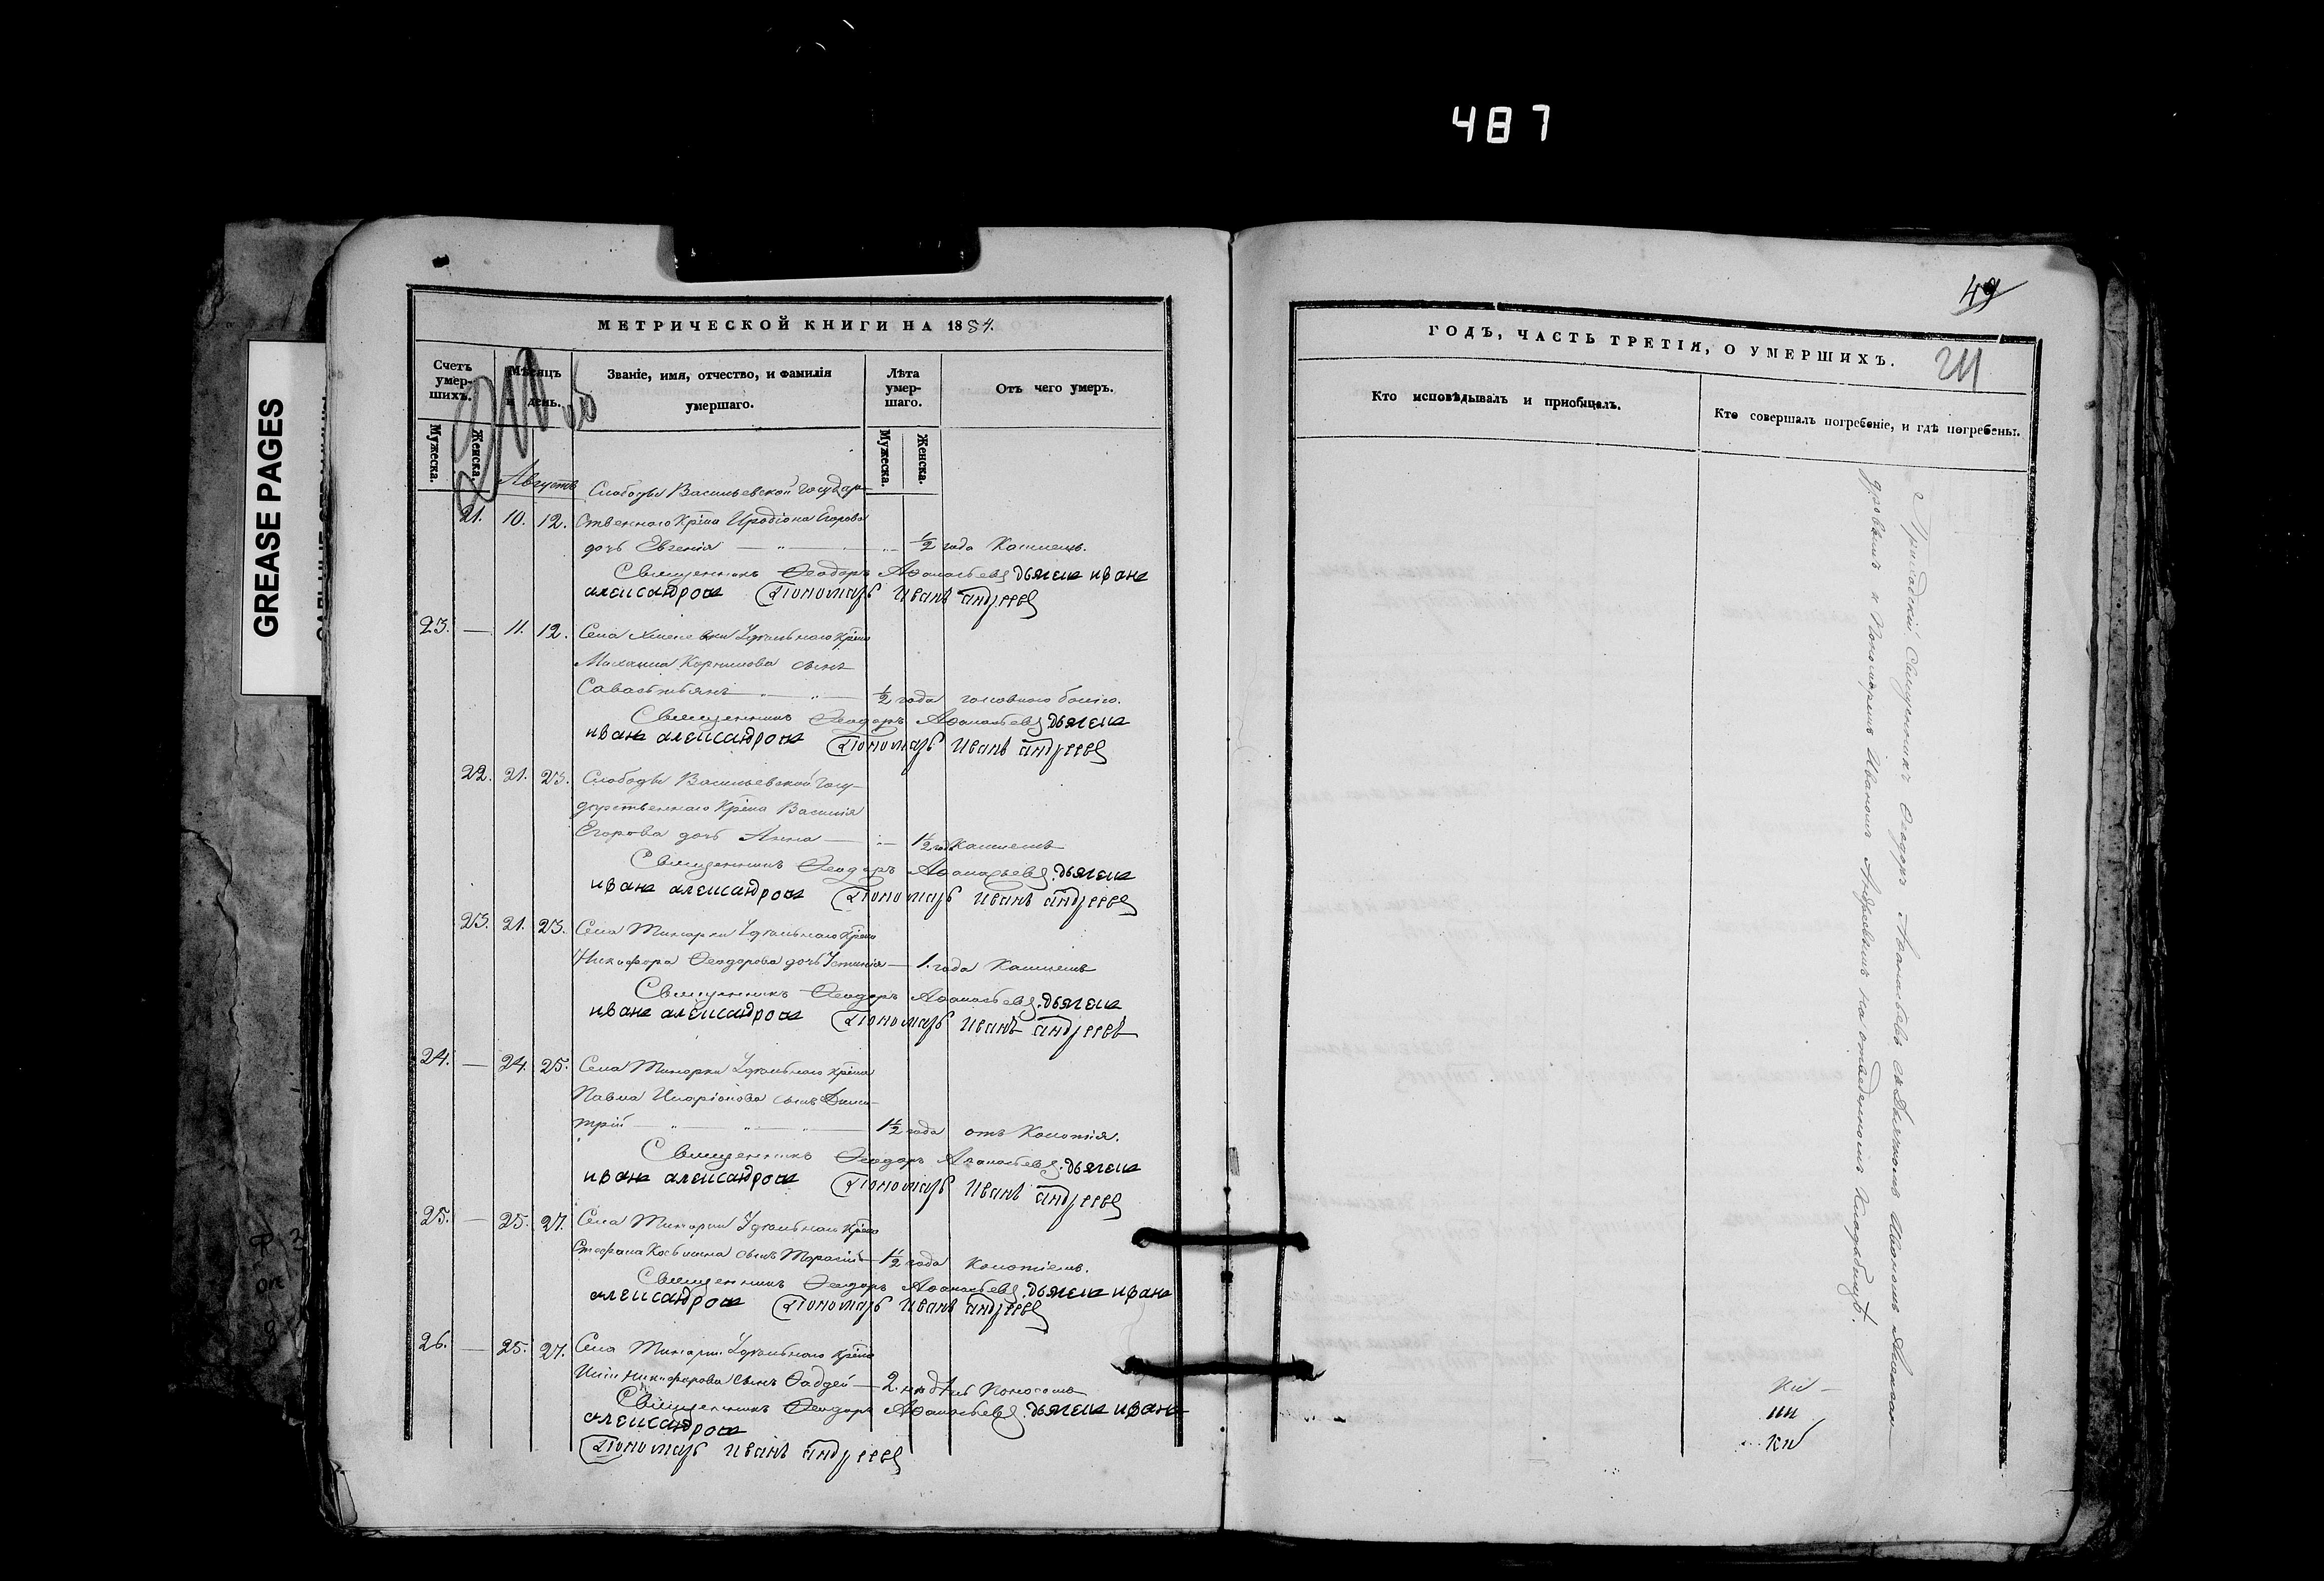 487
GREASE PAGES
МЕТРИЧЕСКОЙ КНИГИ НА 1854.
Счетъ умер-шихъ.
Мужеска.
Женска.
Мѣсяцъ и день.
Званіе, имя, отчество, и фамилія
умершаго.
Лѣта умер-шаго.
Мужеска.
Женска.
Отъ чего умеръ.
Августъ
Слободы Васильевской Государ-
21. 10. 12. ственнаго Крѣна Иродіона Егорова
дочь Евгенія ½ года Кашлемъ.
Священникъ Ѳеодоръ Аѳанасьевъ дьячекъ иванъ
александровъ Пономарь Иванъ Андреевъ
23. — 11. 12. Села Удѣльнаго Крѣна
Михаила Корнилова сынъ
Савастьянъ ½ года головною болію.
Священникъ Ѳеодоръ Аѳанасьевъ дьячекъ
иванъ александровъ Пономарь Иванъ Андреевъ
22. 21. 23. Слободы Васильевской Госу-
дарственнаго Крѣна Василія
Егорова дочь Анна — ½ года Кашлемъ
Священникъ Ѳеодоръ Аѳанасьевъ дьячекъ
иванъ александровъ Пономарь Иванъ Андреевъ
23. 21. 23. Села Удѣльнаго Крѣна
Никифора Ѳеодорова дочь Устинія — 1. года Кашлемъ
Священникъ Ѳеодоръ Аѳанасьевъ дьячекъ
иванъ александровъ Пономарь Иванъ Андреевъ
24. — 24. 25. Села Удѣльнаго Крѣна
Павла Иларіонова сынъ Дими-
трій 1½ года отъ Колотія.
Священникъ Ѳеодоръ Аѳанасьевъ дьячекъ
иванъ александровъ Пономарь Иванъ Андреевъ
25. — 25. 27. Села Удѣльнаго Крѣна
Стефана Косьмина сынъ Тарасій — 1½ года Колотіемъ.
Священникъ Ѳеодоръ Аѳанасьевъ дьячекъ иванъ
александровъ Пономарь Иванъ Андреевъ
26. — 25. 27. Села Удѣльнаго Крѣна
Никифорова сынъ Ѳаддей — 2. недѣль Поносомъ
Священникъ Ѳеодоръ Аѳанасьевъ дьячекъ иванъ
александровъ
Пономарь Иванъ Андреевъ
49
ГОДЪ, ЧАСТЬ ТРЕТІЯ, О УМЕРШИХЪ.
Кто исповѣдывалъ и пріобщалъ.
Кто совершалъ погребеніе, и гдѣ погребены.
Приходскій Священникъ Ѳеодоръ Аѳанасьевъ съ Дьячкомъ Иваномъ Алексан-
дровымъ и Пономаремъ Иваномъ Андреевымъ на отведенномъ Кладбищѣ.